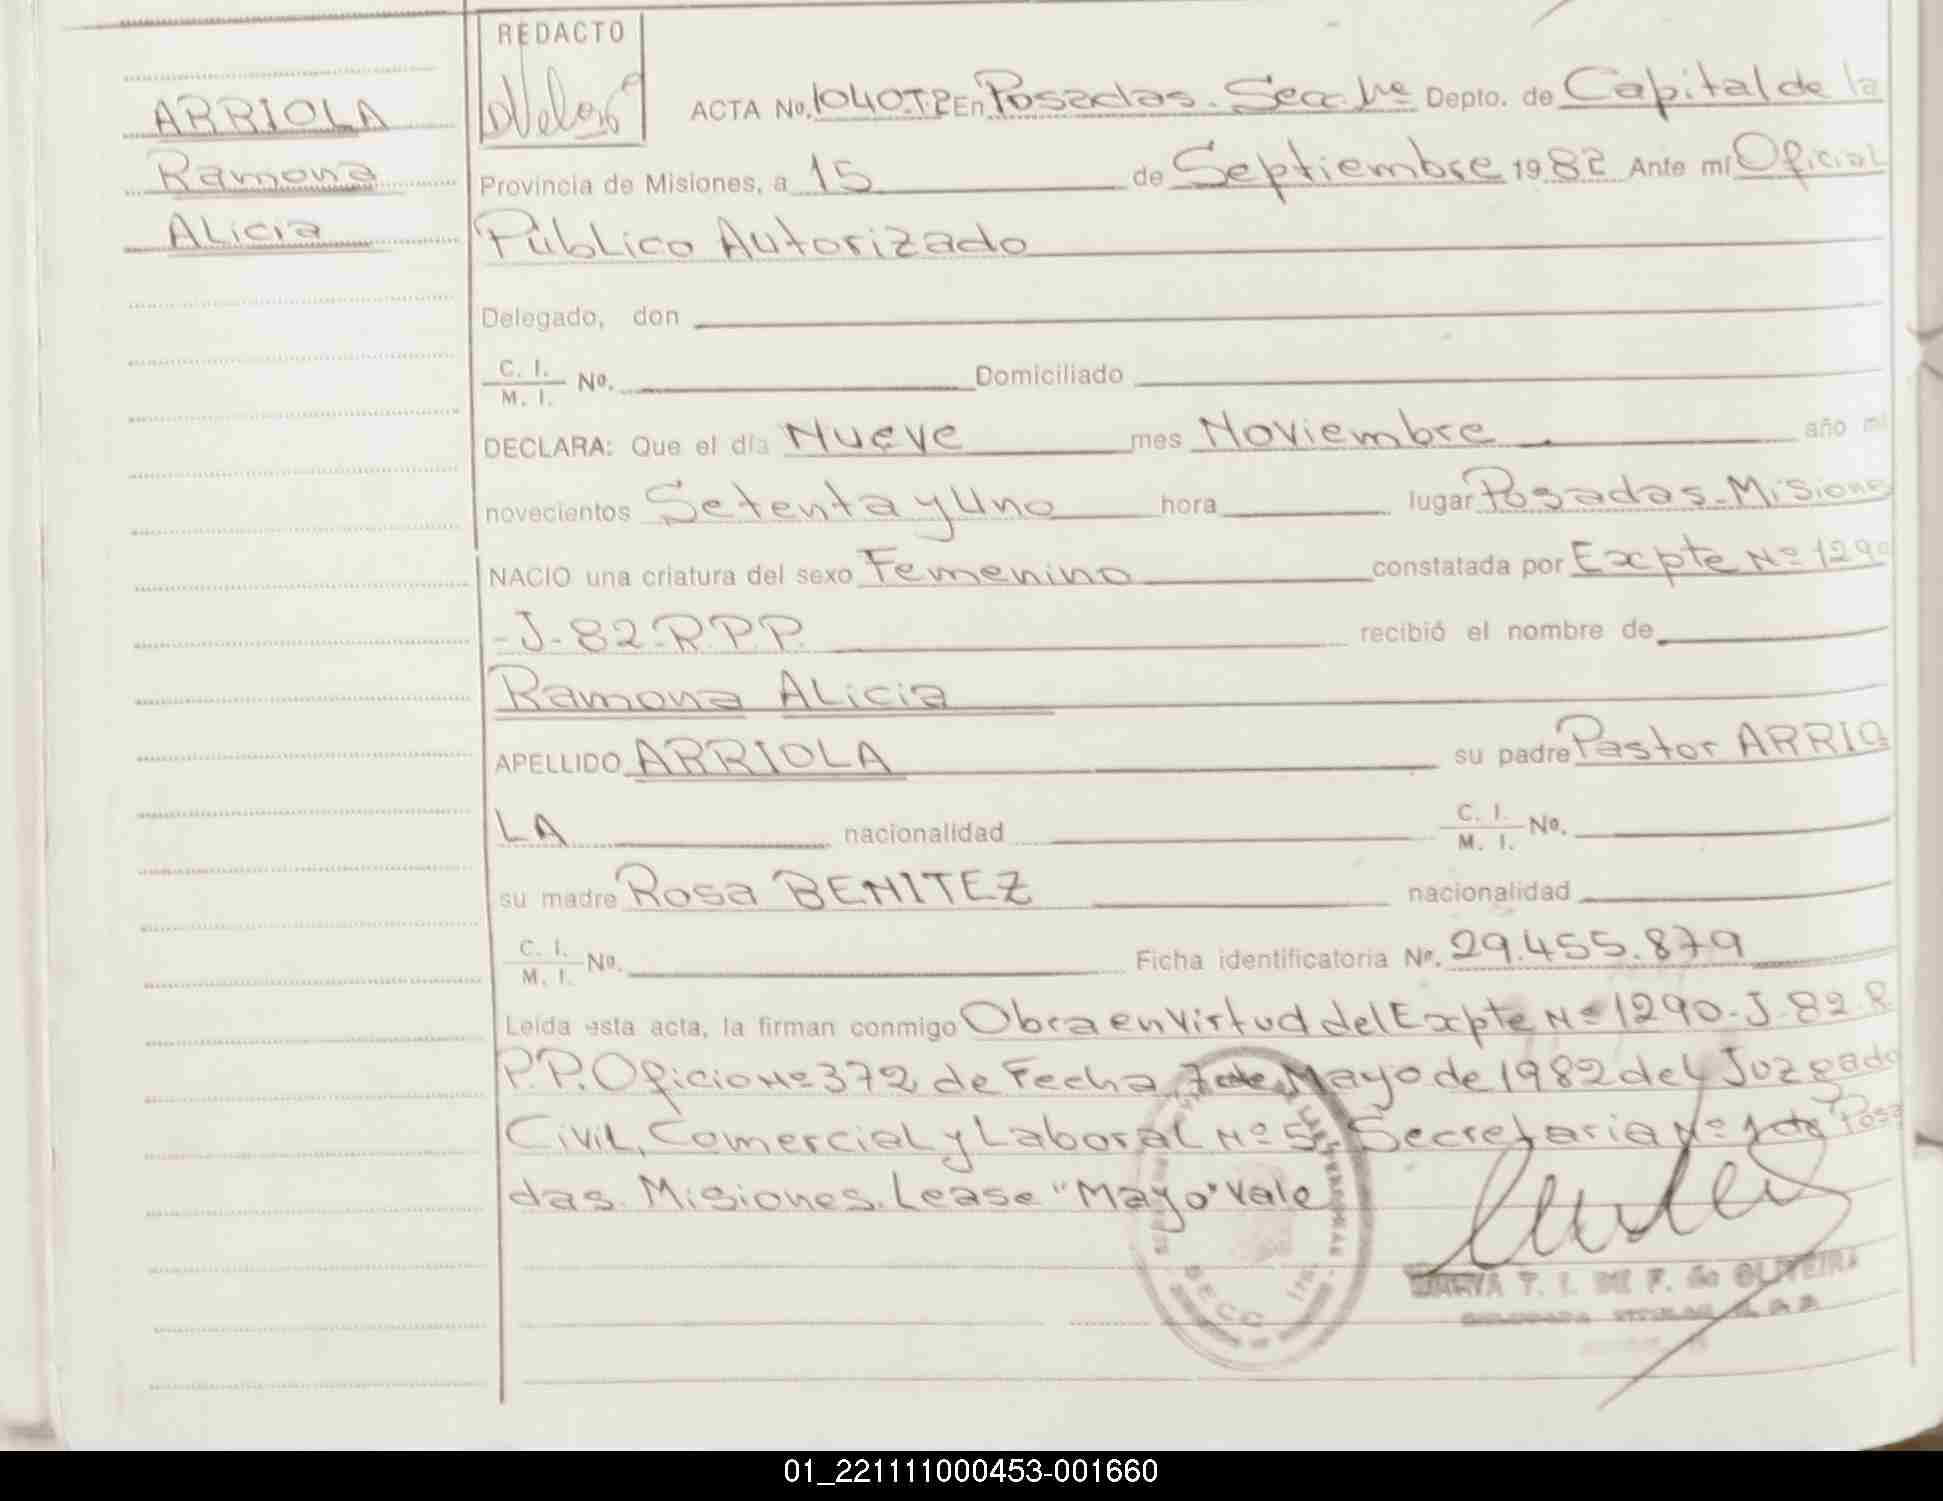 REDACTO
ARRIOLA
Ramona
Alicia
ACTA No. 1040.T.2 En Posadas. Secc. 1ra Depto. de Capital de la
Provincia de Misiones, a 15 de Septiembre 1982 Ante mí Oficial
Público Autorizado
Delegado, don
C. I.
M. I. No. Domiciliado
DECLARA: Que el día Nueve mes Noviembre año mi
novecientos Setenta y Uno hora lugar Posadas-Misiones
NACIO una criatura del sexo Femenino constatada por Expte Nº 1290
-J-82-R.P.P. recibió el nombre de
Ramona Alicia
APELLIDO ARRIOLA su padre Pastor ARRIO
LA nacionalidad C. I.
M. I. No.
su madre Rosa BENITEZ nacionalidad
C. I.
M. I. No. Ficha identificatoria Nº. 29.455.879
Leída esta acta, la firman conmigo Obra en virtud del Expte Nº 1290-J-82-R.
P.P. Oficio Nº 372 de Fecha 7 de Mayo de 1982 del Juzgado
Civil, Comercial y Laboral Nº 5 Secretaria Nº 1 de Posa
das. Misiones. Lease "Mayo" Vale
SECC
P. I. DE F. do OLIVEIRA
01_221111000453-001660